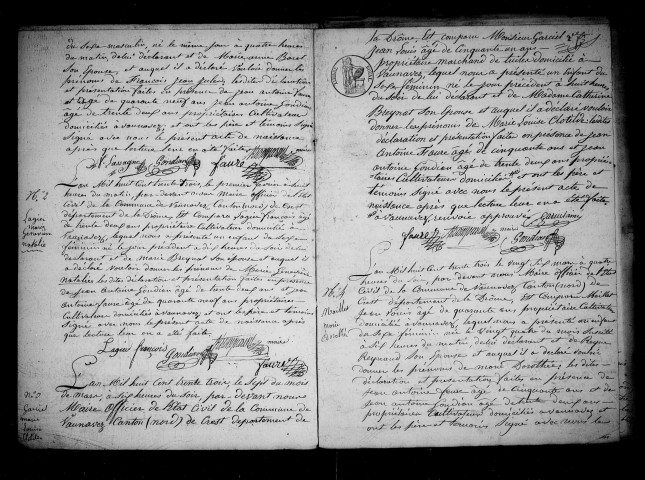 du sexe masculin, né le même jour à quatre heures
du matin, de lui déclarant et de Marie Anne Baret
Son Epouse, et auquel il a déclaré vouloir donner les
prénoms de François Jean Jules, les dites déclaration
et présentation faites en présence de jean antoine faure
agé de quarante neuf ans jean antoine Goudin
agé de trente deux ans propriétaires Cultivateur
domiciliés a vaunavez, et ont les père et témoins Signé
Signé avec nous le présent acte de naissance
après que lecture leur en a été faite
faure
N.° 2
Lagier
marie
Genevieve
natalie
L'an Mil huit Cent trente trois, le premier février à huit
heures du matin par devant nous Maire officier de l'Etat
Civil de la Commune de Vaunavez Canton (nord) de Crest
département de la Drôme, Est Comparu Lagier françois agé
de trente deux ans, propriétaire Cultivateur domicilié à
Vaunavez, lequel nous a présenté un enfant du Sexe
féminin né le jour précédent à Six heures du Soir de lui
déclarant et de Marie Breynat Son épouse et auquel il
a déclaré Vouloir donner les prénoms de Marie Genevieve
Natalie les dites déclaration et présentation faites en présence
de Jean Antoine Goudin agé de trente deux ans et jean
antoine faure agé de quarante neuf ans propriétaires
Cultivateur domiciliés a vaunavez, et ont le père et témoins
Signé avec nous le présent acte de naissance après
que lecture leur en a été faite.
Lagier françois
maire
faure
N.° 3
Garciel
marie
Louise
Clotilde
L'an Mil huit Cent trente trois, le Sept du mois
de mars, a Six heures du Soir, par devant nous
Maire Officier de l'Etat Civil de la Commune de
Vaunavez Canton (nord) de Crest département de
la Drôme, Est Comparu Monsieur Garciel
Jean Louis agé de Cinquante ans
propriétaire marchand de tuiles domicilié à
Vaunavez, lequel nous a présenté un Enfant du
Sexe féminin né le jour précédent à huit heures
du Soir de lui déclarant et de Madame Catherine
Breynat Son Epouse et auquel il a déclaré vouloir
donner les prénoms de Marie Louise Clotilde, lesdites
déclaration et présentation faites en présence de jean
Antoine Faure agé de cinquante ans et jean
antoine Goudin agé de trente deux ans propriétaires
Cultivateur Domiciliés et ont les père et
témoins Signé avec nous le présent acte de
naissance après que lecture leur en a été faite
a Vaunavez, renvoie approuvé
faure
maire
N.° 4
marie
Dorothée
L'an Mil huit Cent trente trois le vingt Six mars à quatre
heures du Soir, par devant nous Maire officier de l'Etat
Civil de la Commune de Vaunavez, Canton (nord) de
Crest département de la Drôme, Est Comparu
Jean Louis agé de quarante ans propriétaire Cultivateur
domicilié a vaunavez, lequel nous a présenté un enfant
du Sexe féminin né le vingt quatre du mois
à Six heures du matin de lui déclarant et de
Reynaud Son Epouse et auquel il a déclaré vouloir
donner les prénoms de marie Dorothée, les dites
déclaration et présentation faites en présence de
Jean antoine faure agé de cinquante ans et de
jean antoine Goudin agé de trente deux ans
propriétaires Cultivateur domiciliés a vaunavez et
ont les père et témoins Signé avec nous le